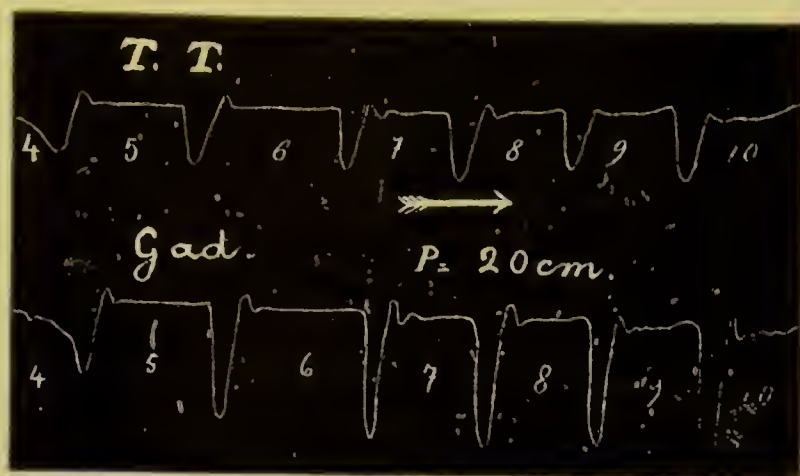 T. T.
4 5 6 7 8 9 10
Gad. P= 20cm.
4 5 6 7 8 9 10